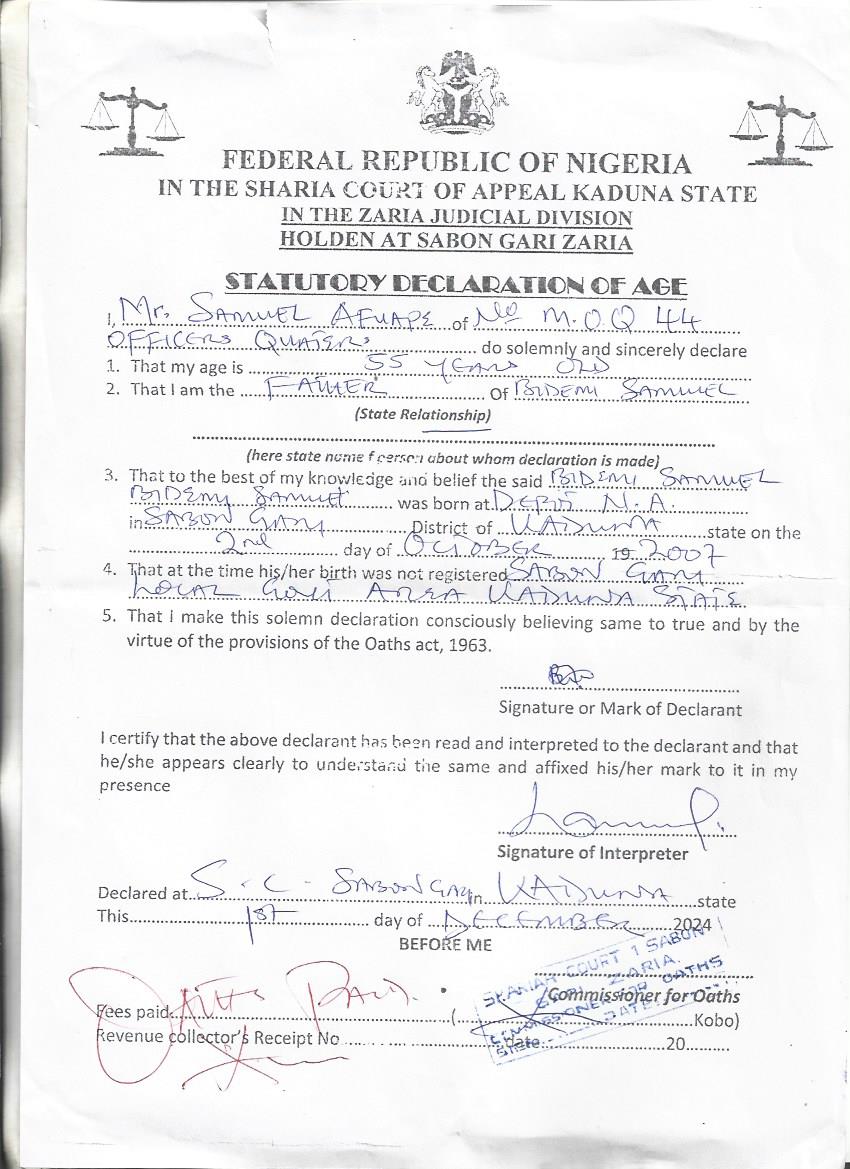 FEDERAL REPUBLIC OF NIGERIA
IN THE SHARIA COURT OF APPEAL KADUNA STATE
IN THE ZARIA JUDICIAL DIVISION
HOLDEN AT SABON GARI ZARIA
STATUTORY DECLARATION OF AGE
I, Mr. SAMUEL AFUAPE of No M.O.Q 44
OFFICERS QUATERS do solemnly and sincerely declare
1. That my age is 55 YEARS OLD
2. That I am the FATHER Of BIDEMI SAMUEL
(State Relationship)
(here state name f person about whom declaration is made)
3. That to the best of my knowledge and belief the said BIDEMI SAMUEL
BIDEMI SAMUEL was born at DEPOT N.A.
in SABON GARI District of KADUNA state on the
2nd day of OCTOBER 19 2007
4. That at the time his/her birth was not registered SABON GARI
LOCAL GOVT AREA KADUNA STATE
5. That I make this solemn declaration consciously believing same to true and by the
virtue of the provisions of the Oaths act, 1963.
Signature or Mark of Declarant
I certify that the above declarant has been read and interpreted to the declarant and that
he/she appears clearly to understand the same and affixed his/her mark to it in my
presence
Signature of Interpreter
Declared at S.C - SABON GARI in KADUNA state
This 1st day of DECEMBER 2024
BEFORE ME
SHARIAH COURT 1 SABON
GARI ZARIA.
COMMISSIONER FOR OATHS
SIGN DATE
(Commissioner for Oaths
Fees paid: PAID. ( Kobo)
Revenue collector's Receipt No date 20